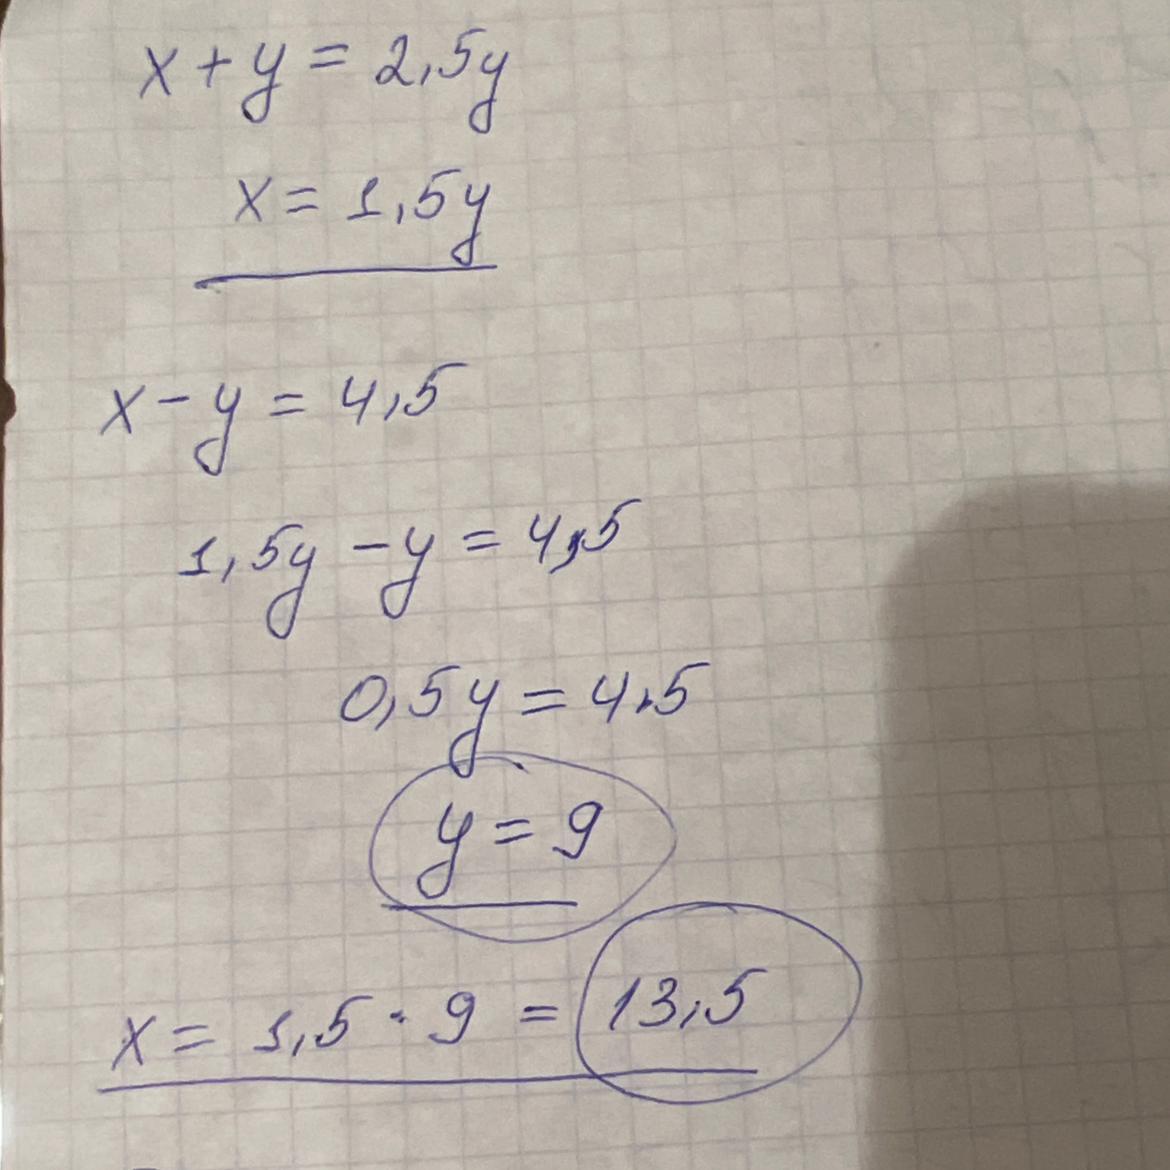 x + y = 2,5y
x = 1,5y
x - y = 4,5
1,5y - y = 4,5
0,5y = 4,5
y = 9
x = 1,5 · 9 = 13,5